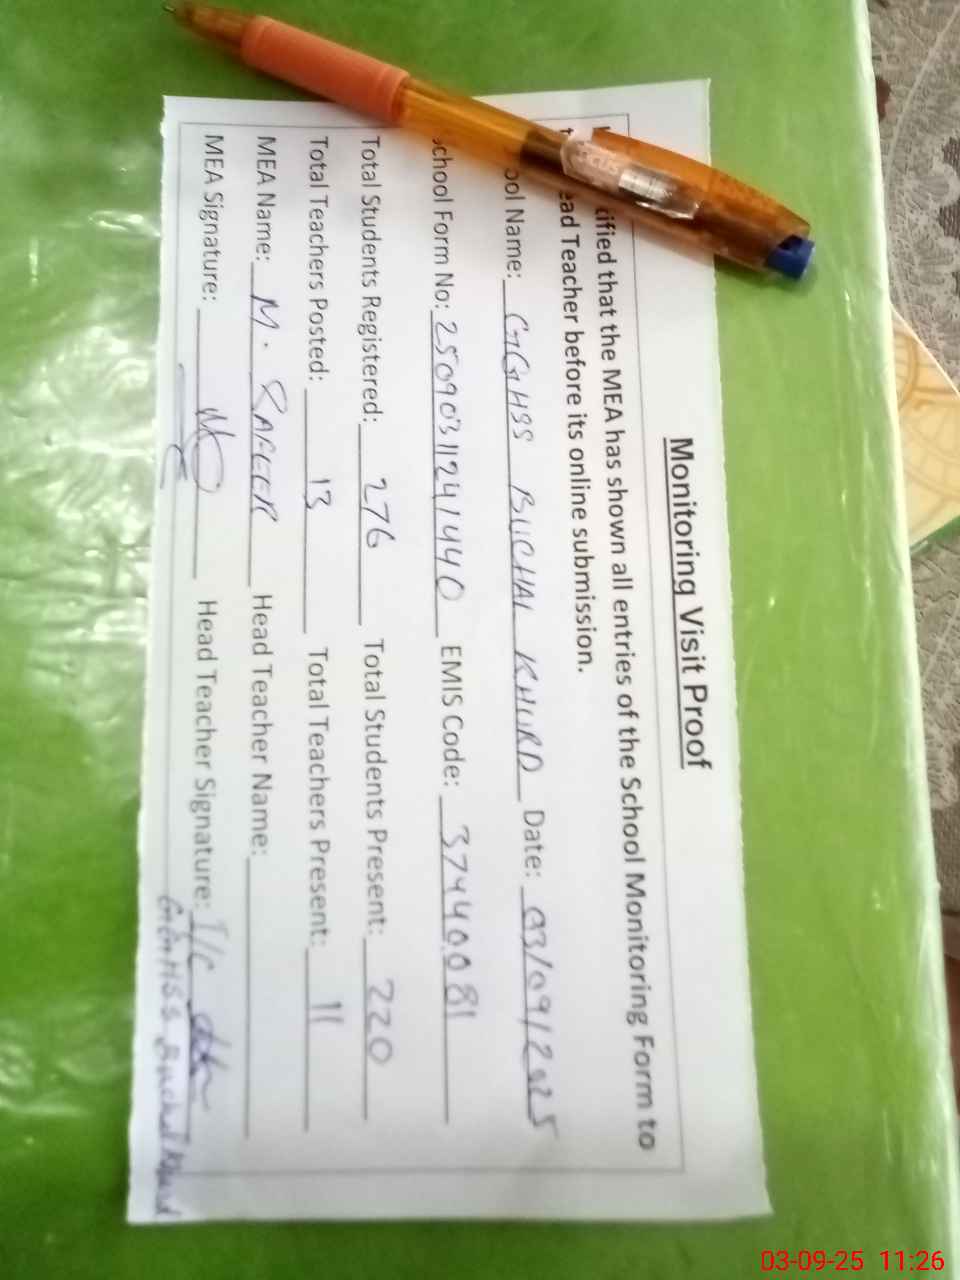 Monitoring Visit Proof
tified that the MEA has shown all entries of the School Monitoring Form to
ead Teacher before its online submission.
ool Name: GGHSS BUCHAL KHURD Date: 03/09/2025
chool Form No: 25090311241440 EMIS Code: 37440081
Total Students Registered: 276 Total Students Present: 220
Total Teachers Posted: 13 Total Teachers Present: 11
MEA Name: M. SAFEER Head Teacher Name:
MEA Signature: Head Teacher Signature: I/C
GGHSS Buchal Khurd
03-09-25 11:26